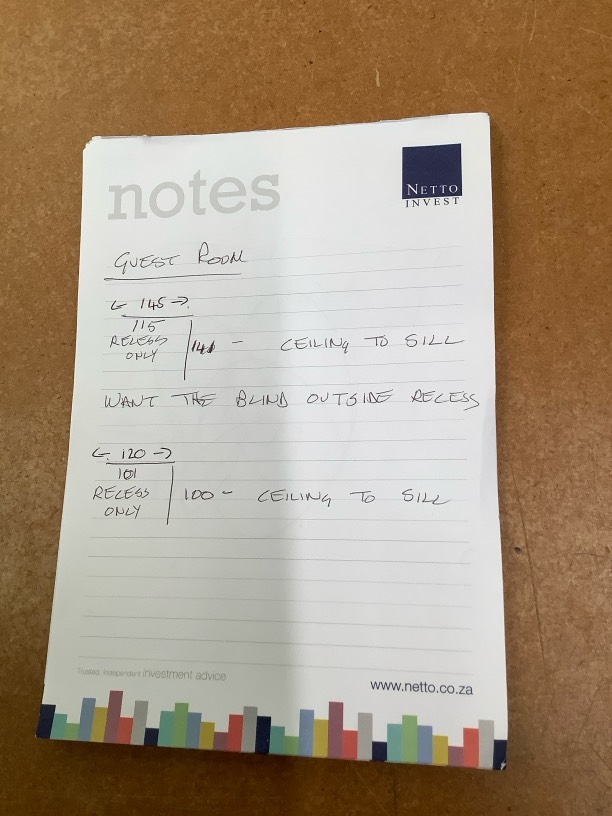 notes
NETTO
INVEST
GUEST ROOM
← 145 →
115
RECESS
ONLY
141 - CEILING TO SILL
WANT THE BLIND OUTSIDE RECESS
← 120 →
101
RECESS
ONLY
100 - CEILING TO SILL
Trusted, independent investment advice
www.netto.co.za